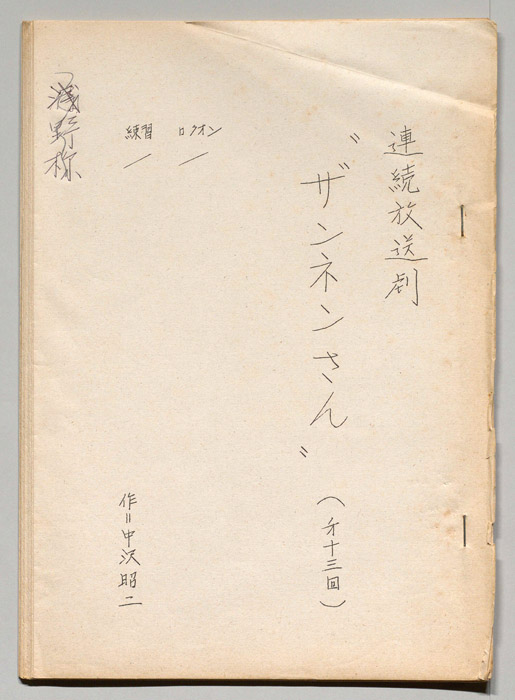 連続放送劇
〝ザンネンさん〟
(才十三回)
ロクオン
/
練習
/
作=中沢昭二
浅野様